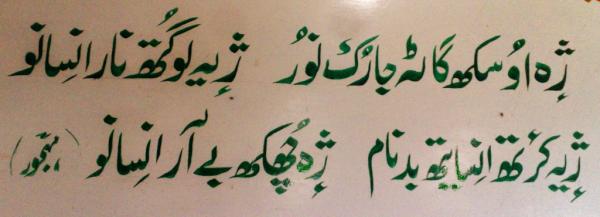 ژٕہ اوسُکھ گاٹہٕ جارُک نوٗر ژٕیہ لوگُتھ نار انسانو
ژٕیہ کرٕتھ انسانیتھ بدنام ژٕہ چھُکھ بے آر انسانو (مہجوٗر)